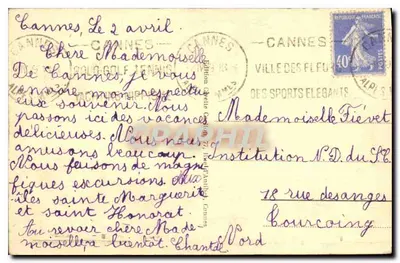 Cannes, le 2 avril.
Chère Mademoiselle
De Cannes, je vous
envoie mon respectu
eux souvenir. Nous
passons ici des vacances
délicieuses. Nous nous
amusons beaucoup.
Nous faisons de magni
fiques excursions. Aux
îles sainte Marguerite
et saint Honorat.
Au revoir chère Made
moiselle, à bientôt. Chantal
Mademoiselle Fiévet
Institution N.D. du S.C.
18 rue des anges
Tourcoing
Nord
CANNES
CANNES
POLO GOLF TENNIS
CANNES
CANNES
VILLE DES FLEURS
DES SPORTS ELEGANTS
REPUBLIQUE FRANÇAISE
40c
POSTES